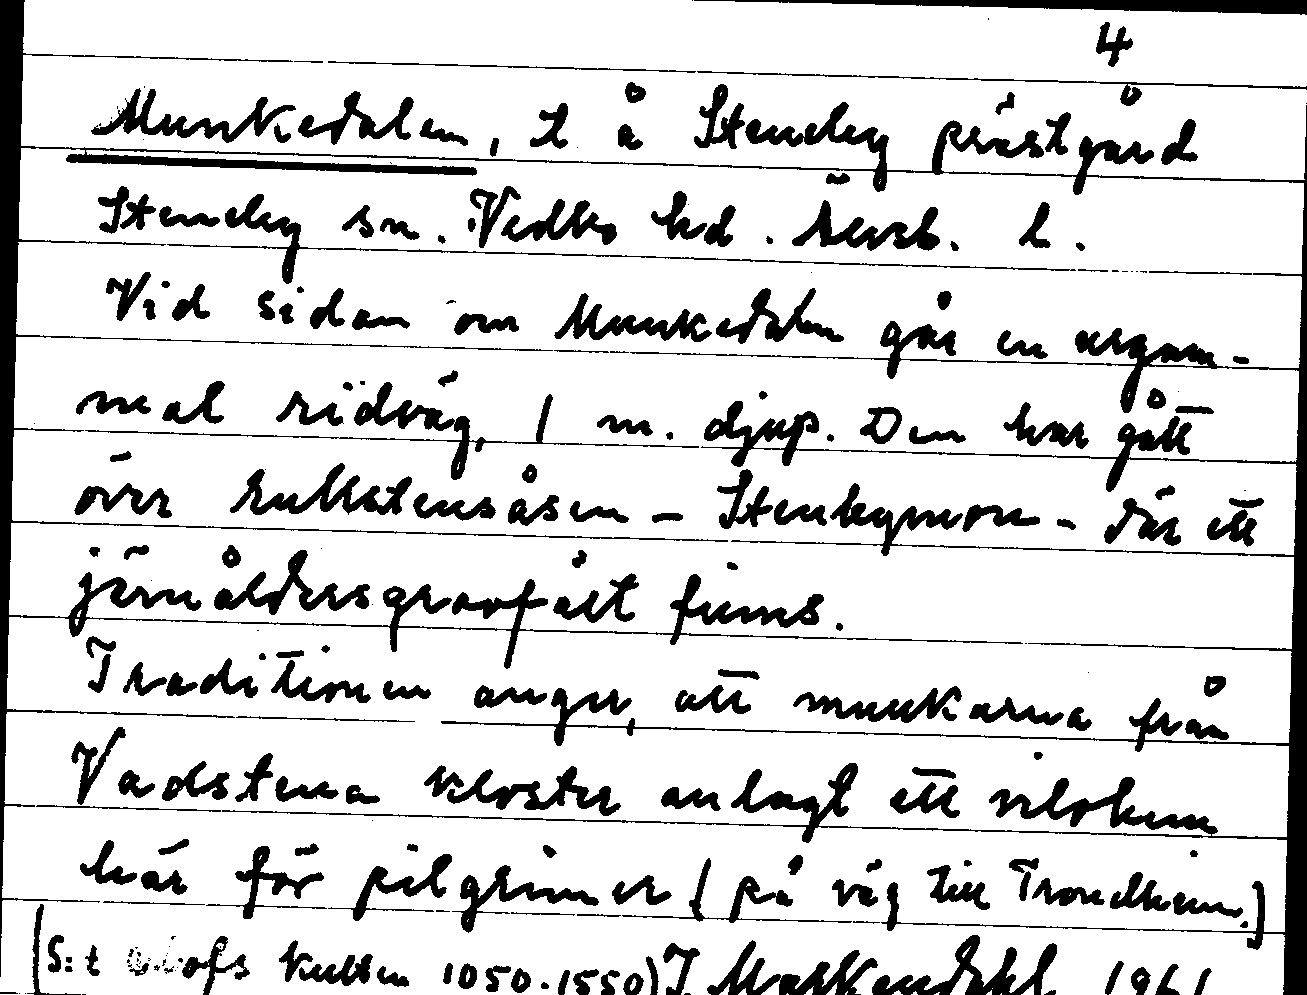 4
Munkedalen, t å Stenby prästgård
Stenby sn. Vedbo hd. Älvsb. l.
Vid sidan om Munkedalen går en urgam-
mal ridväg, 1 m. djup. Den har gått
över rullstensåsen - Stenbymon - där ett
järnåldersgravfält finns.
Traditionen anger, att munkarna från
Vadstena kloster anlagt ett vilohem
här för pilgrimer (på väg till Trondheim.)
(S:t Olofs kulten 1050-1550) I 1961